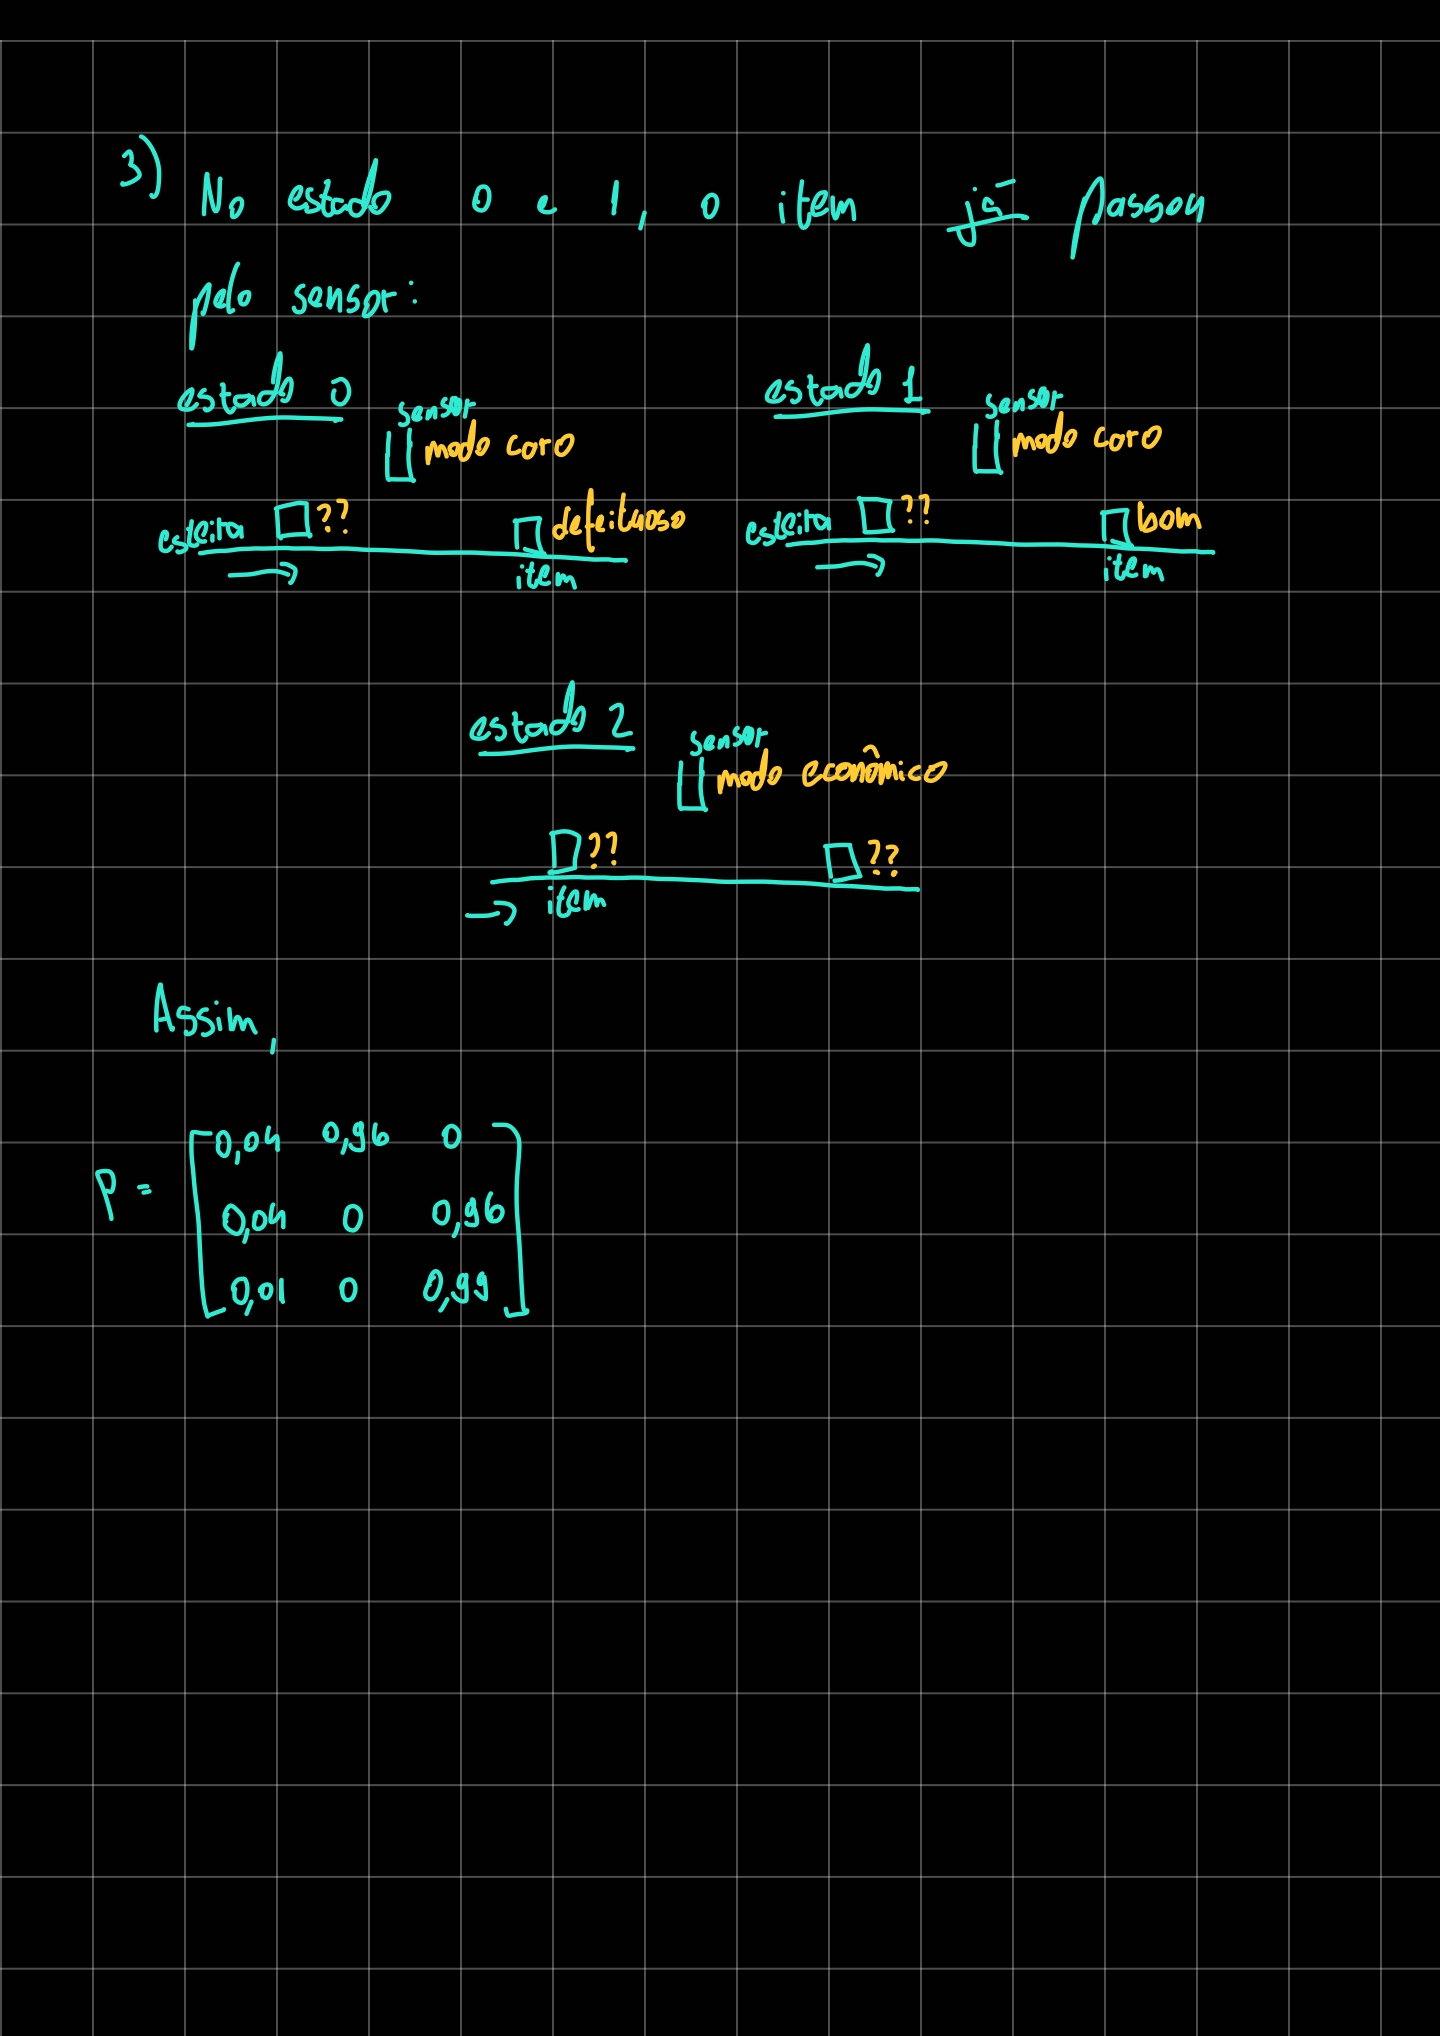 3) No estado 0 e 1, o item já passou
pelo sensor:
estado 0
sensor
modo caro
esteira ?? defeituoso
item
estado 1
sensor
modo caro
esteira ?? bom
item
estado 2
sensor
modo econômico
?? ??
item
Assim,
P = [0,04 0,96 0
0,04 0 0,96
0,01 0 0,99]